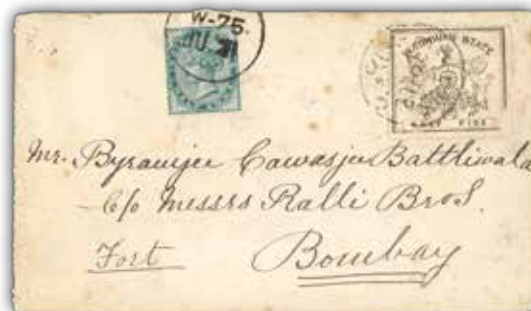 W-75.
JU-21
Mr. Byramjee Cawasjee Battliwala
C/o Messrs Ralli Bros.
Fort Bombay